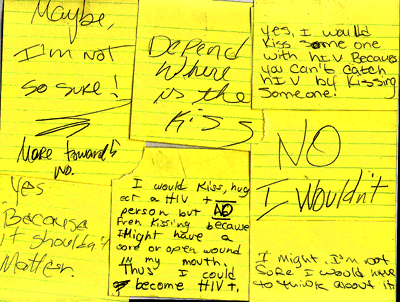 Maybe,
I'm not
so sure!
More towards
no.
Depend
Where
is the
Kiss
Yes, I would
Kiss some one
with hIV Because
you Can't catch
hIV by Kissing
Someone!
Yes
Because
it shouldn't
Matter.
I would Kiss, hug
ect a HIV +
person but NO
Fren Kissing because
I Might have a
sore or open wound
in my mouth.
Thus I could
become HIV+.
NO
I Wouldn't
I might. I'm not
sure I would have
to think about it